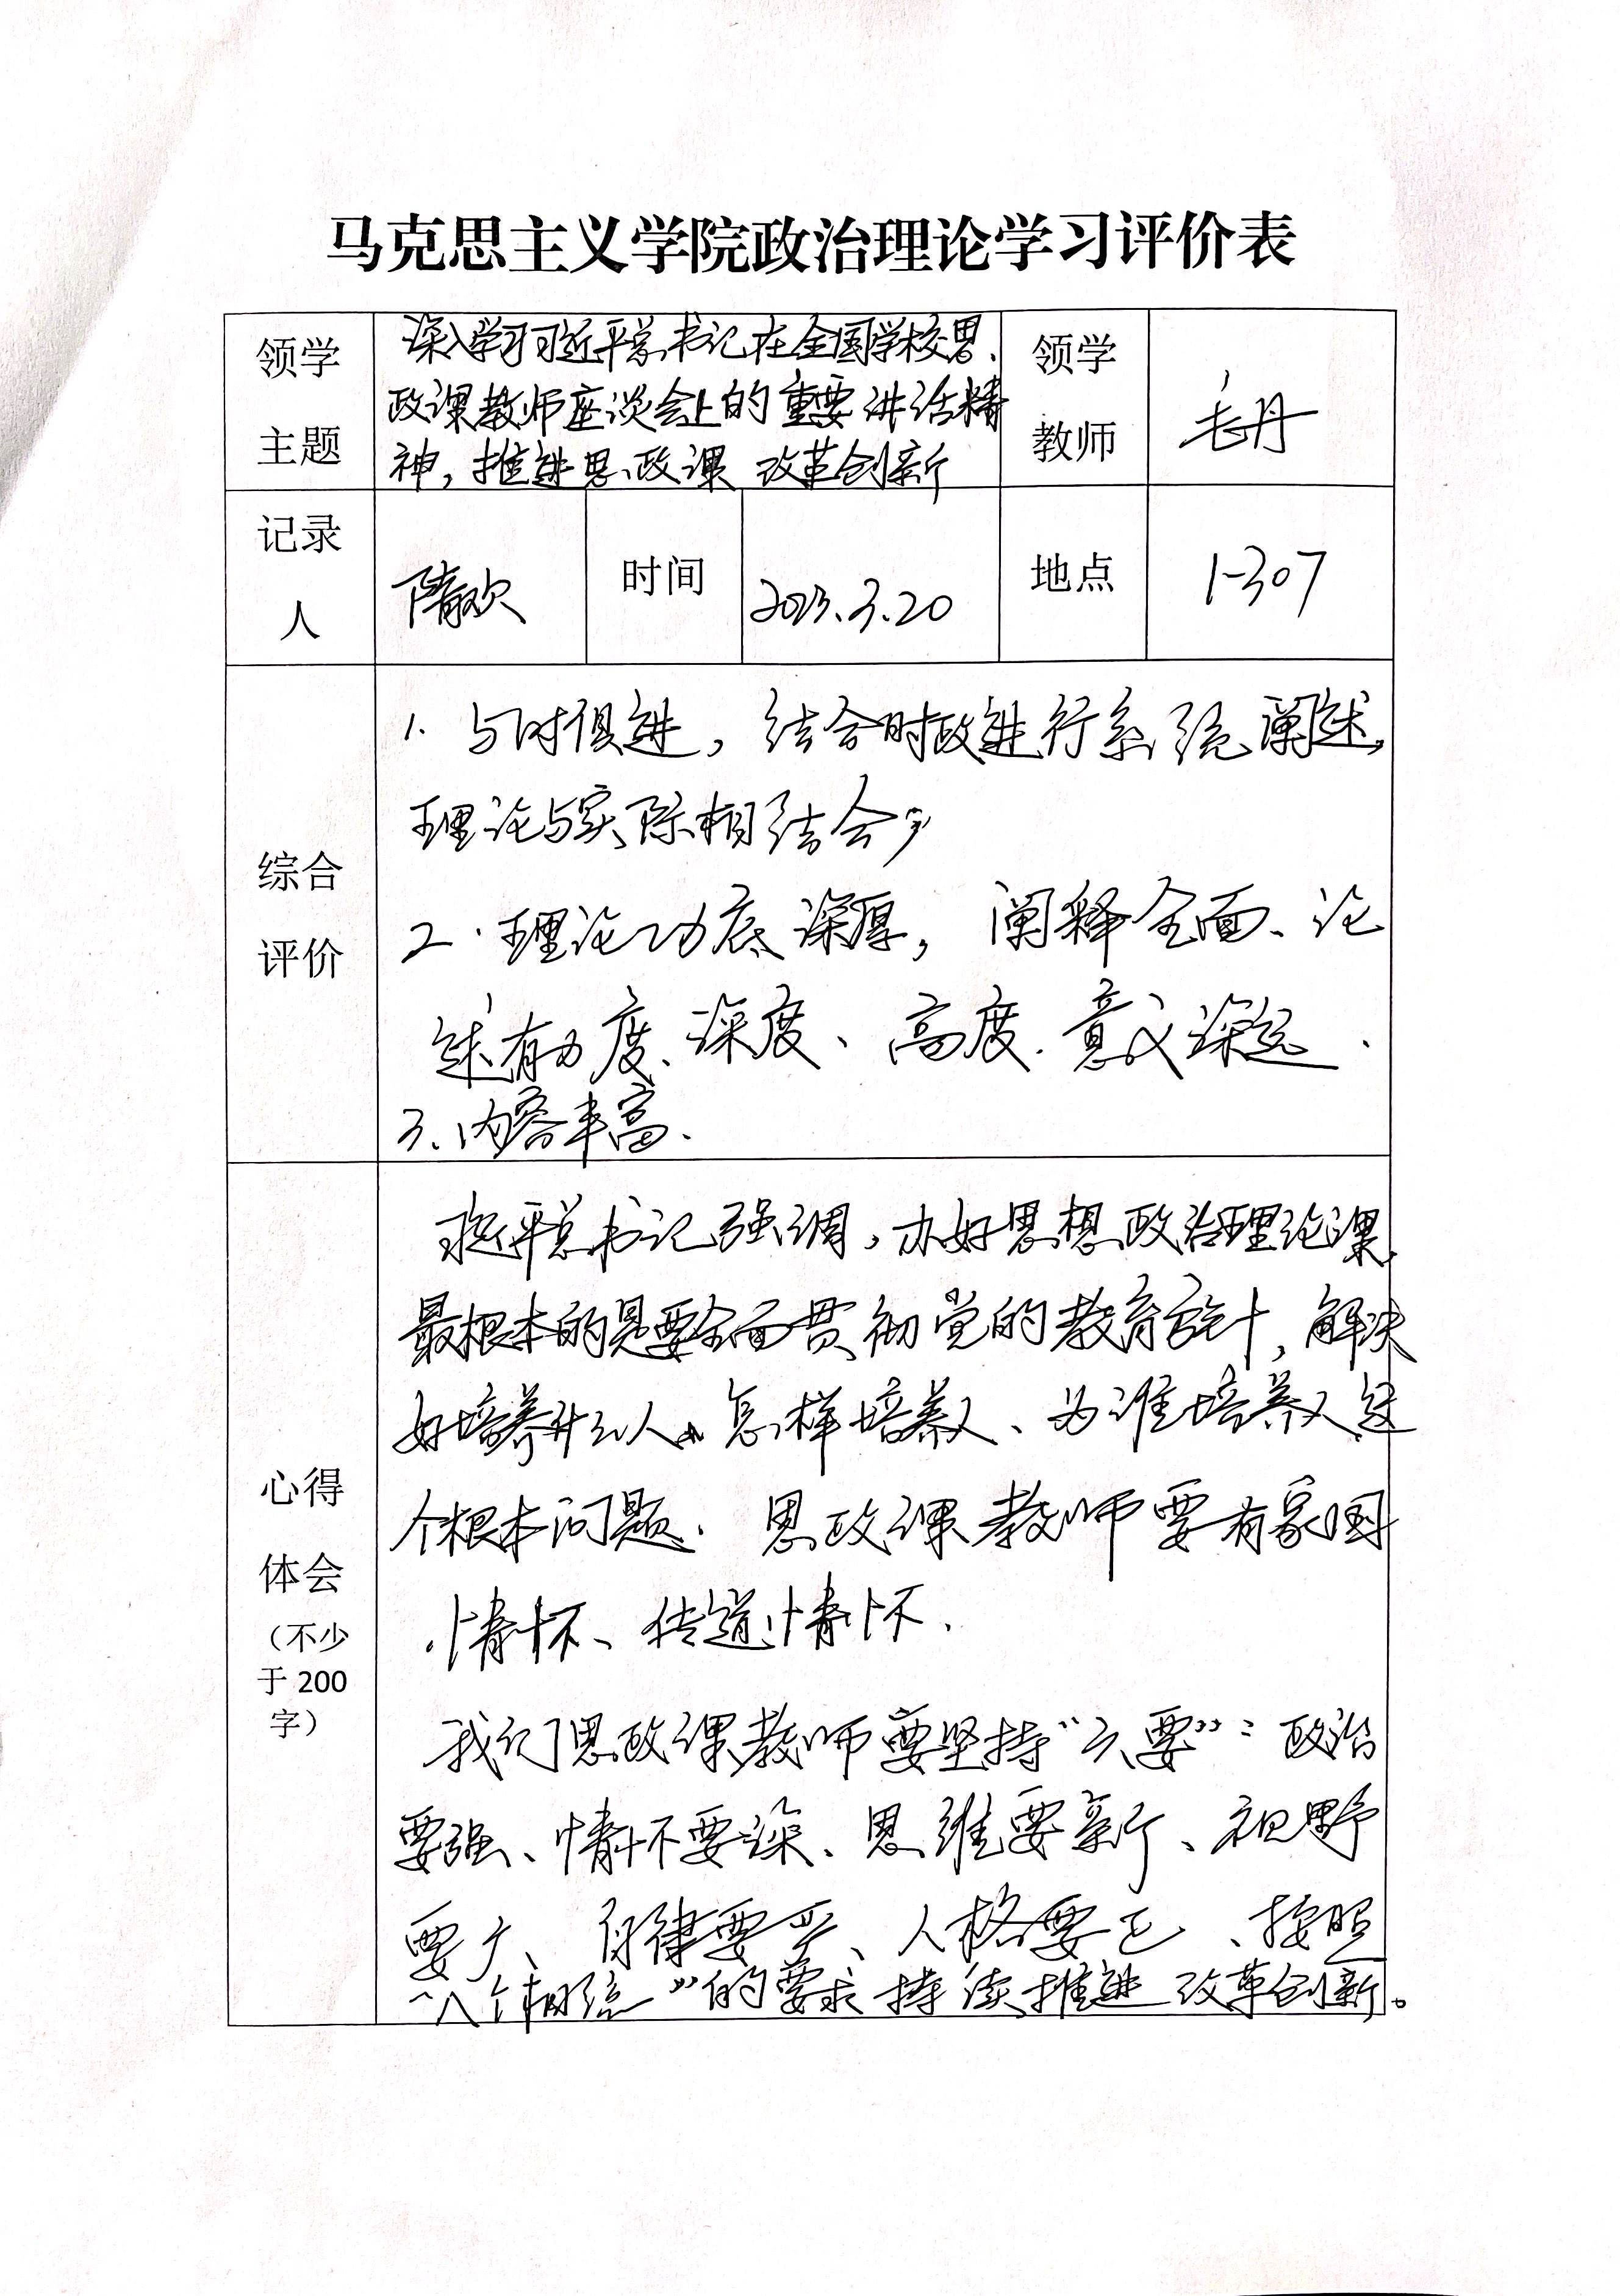 马克思主义学院政治理论学习评价表
领学
主题
深入学习习近平总书记在全国学校思
政课教师座谈会上的重要讲话精
神，推进思政课改革创新
领学
教师
毛丹
记录
人
隋欢
时间
2023.3.20
地点
1-307
综合
评价
1. 与时俱进，结合时政进行系统阐述，
理论与实际相结合；
2. 理论功底深厚，阐释全面、论
述有力度、深度、高度.意义深远.
3、内容丰富.
心得
体会
（不少
于 200
字）
习近平总书记强调，办好思想政治理论课，
最根本的是要全面贯彻党的教育方针，解决
好培养什么人、怎样培养人、为谁培养人这
个根本问题. 思政课教师要有家国
情怀、传道情怀.
我们思政课教师要坚持“六要”：政治
要强、情怀要深、思维要新、视野
要广、自律要严、人格要正、按照
“八个相统一”的要求持续推进改革创新。